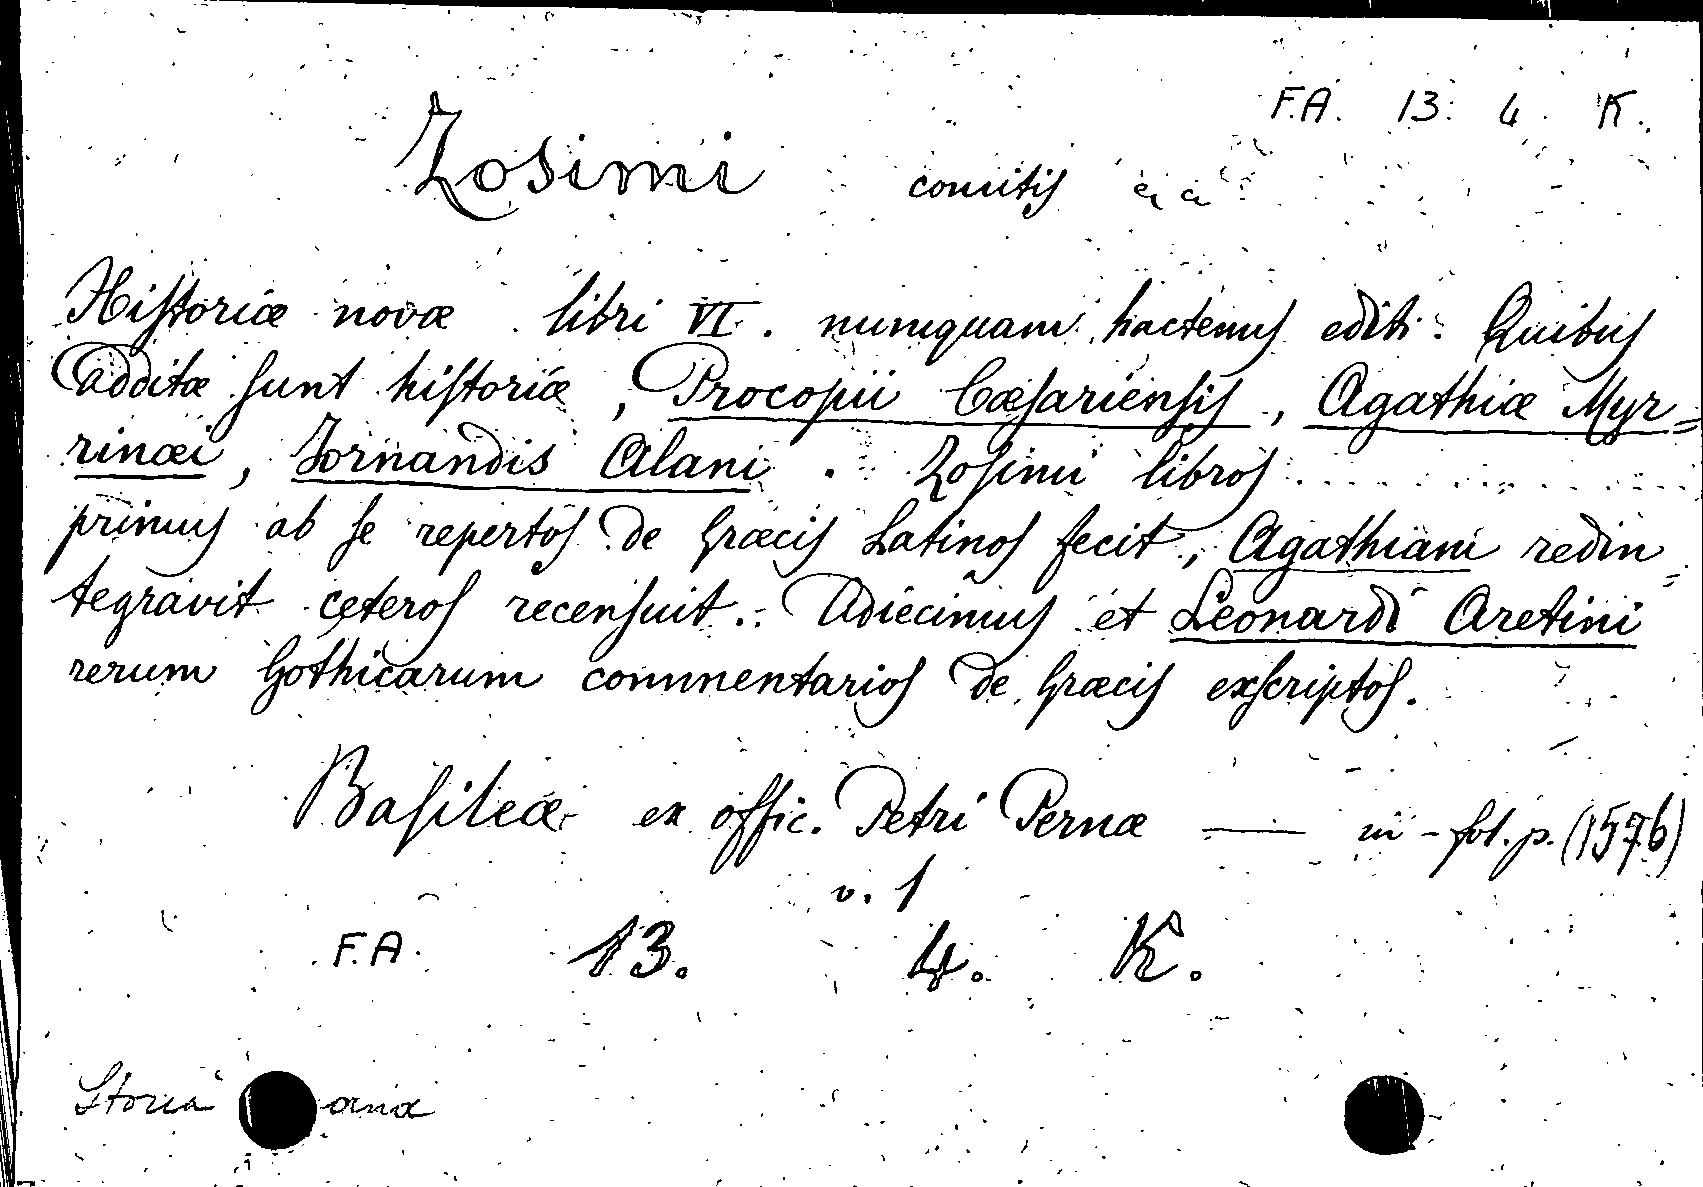 F.A. 13. 4. K.
Zosimi comitis
Historiæ novæ libri VI. numquam hactenus editi: Quibus
additæ sunt historiæ, Procopii Cæsariensis, Agathiæ Myr=
rinæi, Jornandis Alani. Zosimi libros ............
primus ab se repertos de Græcis Latinos fecit, Agathiam redin=
tegravit ceteros recensuit. Adiecimus et Leonardi Aretini
rerum Gothicarum commentarios de Græcis exscriptos.
Basileæ ex offic. Petri Pernæ — in-fol. p. (1576)
v. 1
F.A. 13. 4. K.
Storia